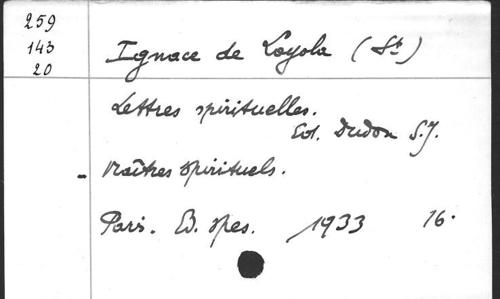 259
143
20
Ignace de Loyola (St)
Lettres spirituelles.
Ed. Dudon S.J.
- Maîtres spirituels.
Paris. Ed. Spes. 1933 16.